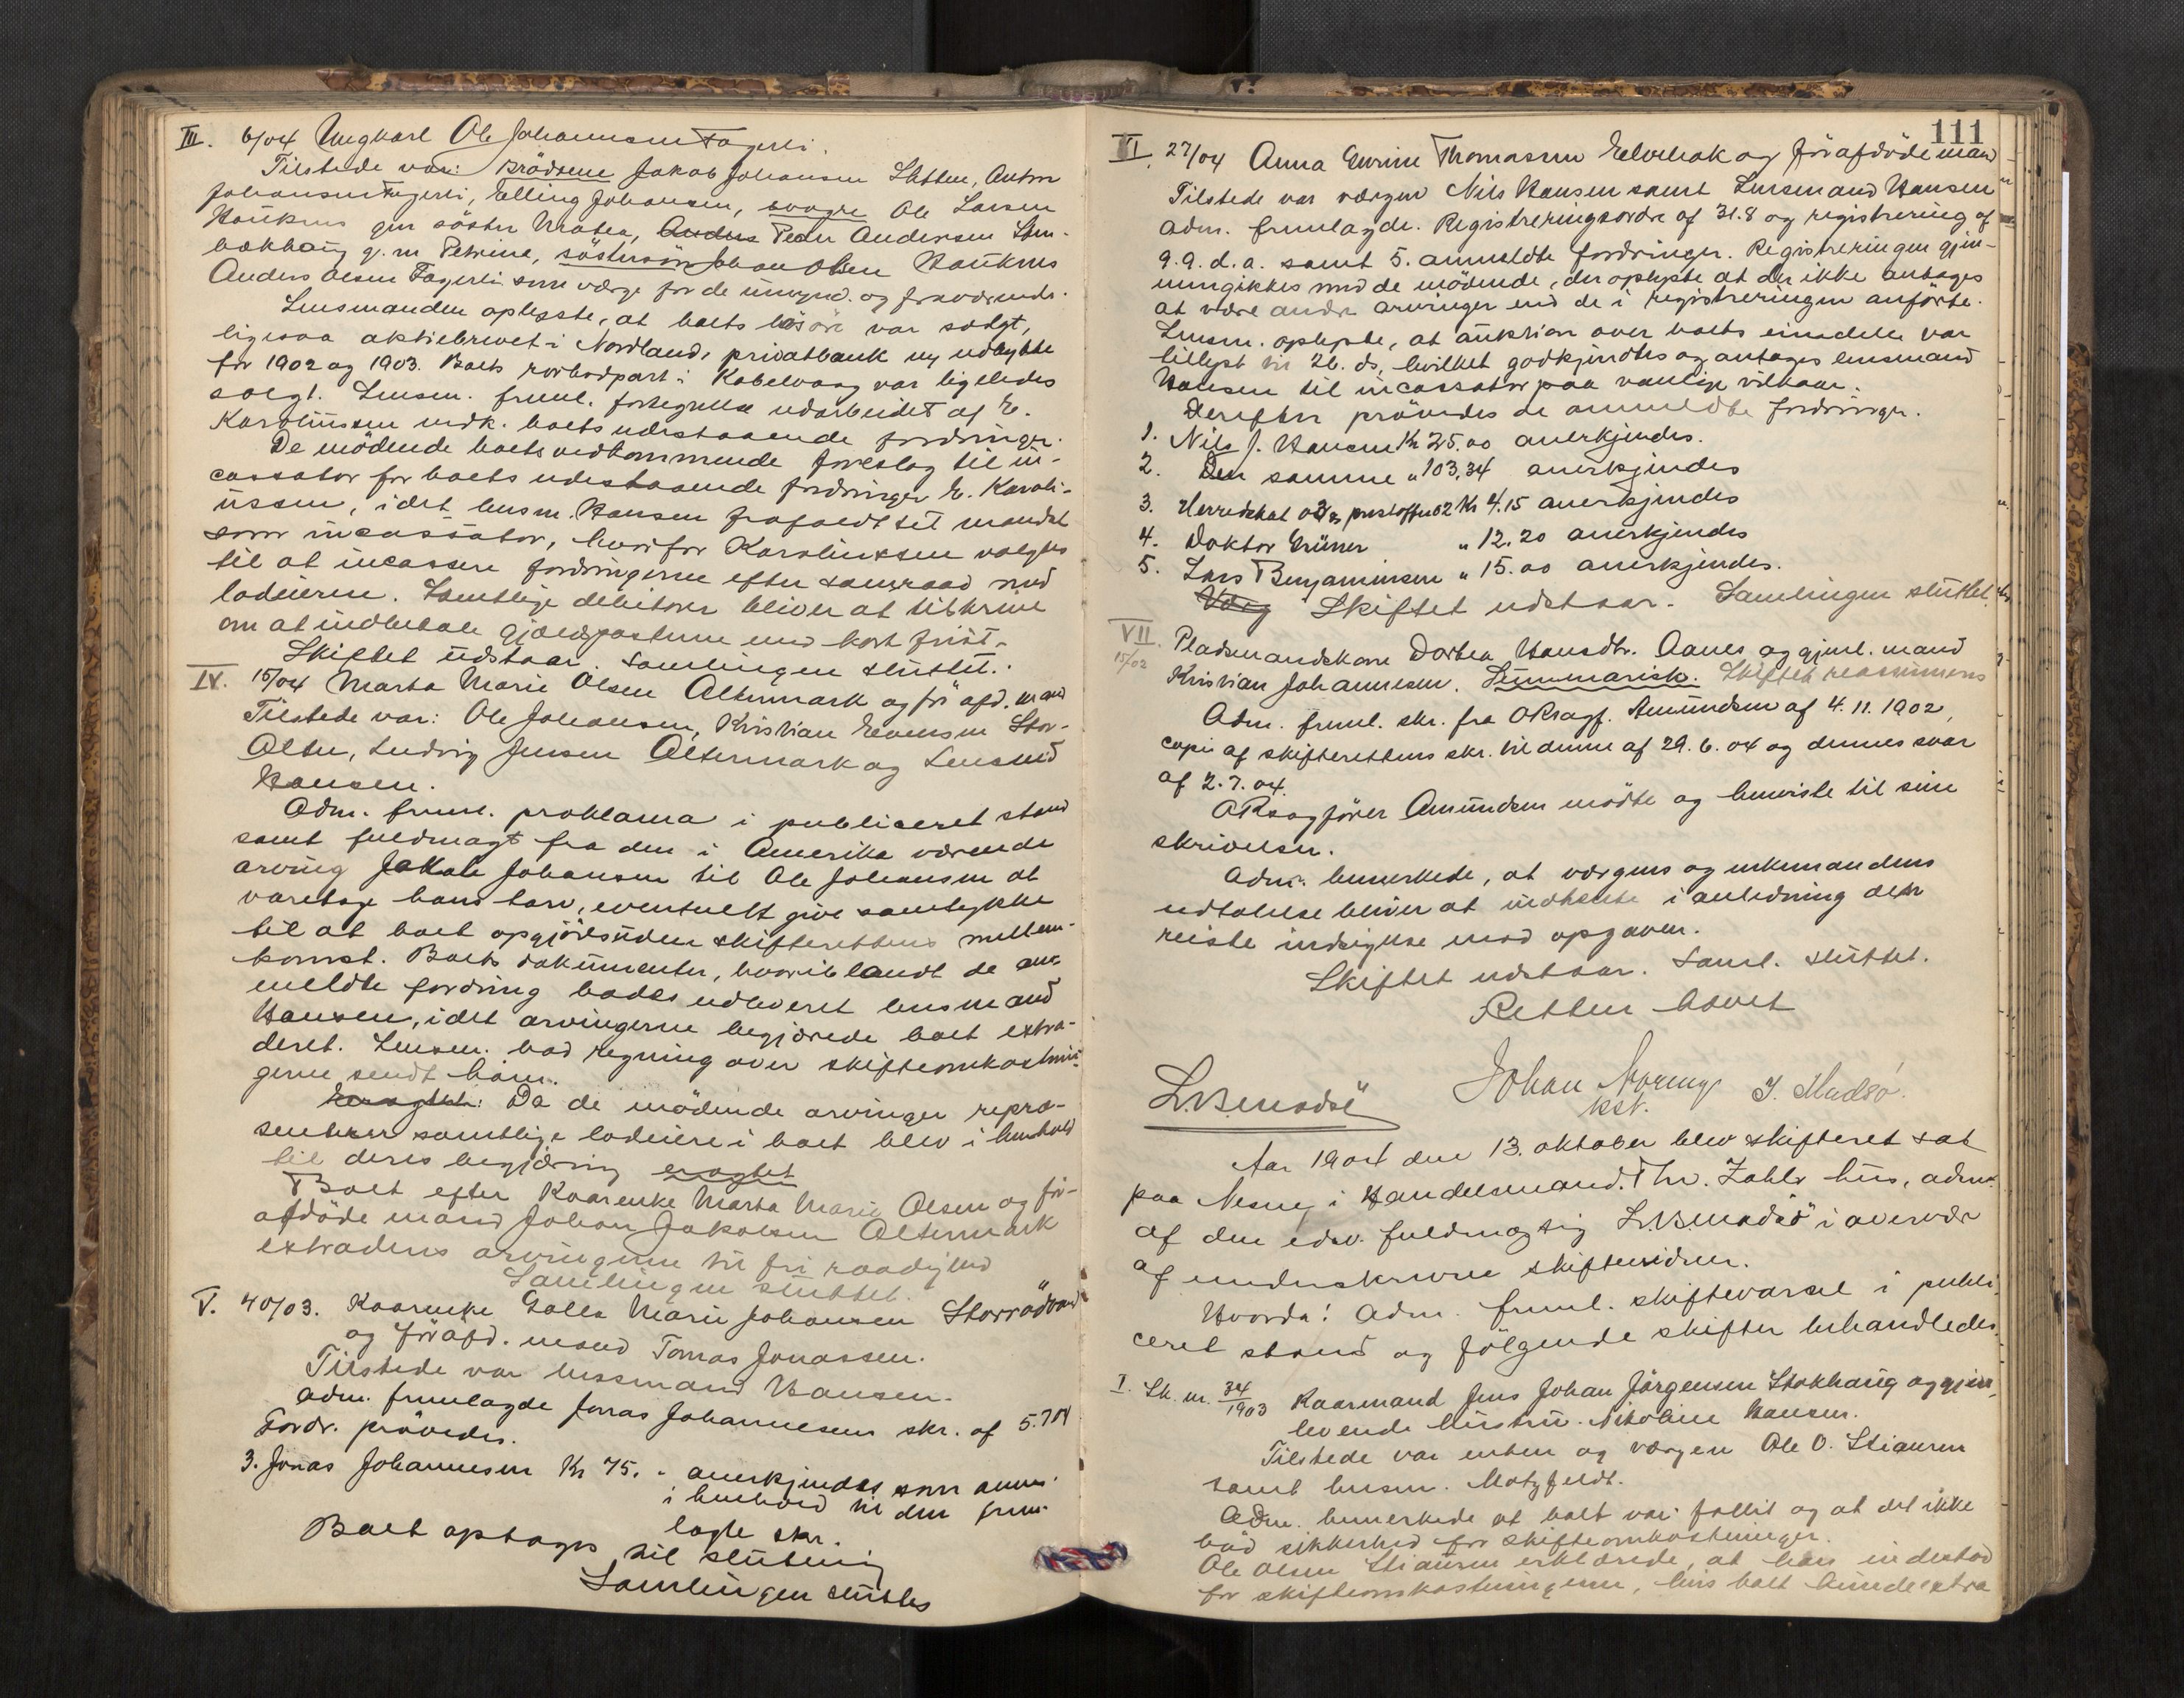 III. 6/04 Ungkarl Ole Johannesen Fagerli.
Tilstede var: Brödrene Jakob Johansen Sletten, Anton
Johansen Fagerli, Elling Johansen, svogre Ole Larsen
Haukenes gm söster Marta, Anders Peder Andersen
bækhaug g. m Petrine, söstersön Johan Olsen Haukenes
Anders Olsen Fagerli som værge for de umynd. og fraværende.
Lensmanden oplyste, at boets lösöre var solgt,
ligesaa aktiebrevet i Nordlands privatbank og udbytte
for 1902 og 1903. Boets rorbodpart i Kabelvaag var ligeledes
solgt. Lensm. freml. fortegnelse udarbeidet af E.
Karoliussen vedk. boets udestaaende fordringer.
De mödende boets vedkommende foreslog til in-
cassator for boets udestaaende fordringer E. Karoli-
ussen, idet lensm. Hansen frafaldt sit mandat
som incassator, hvorfor Karoliussen valgtes
til at incassere fordringerne efter samraad med
lodeierne. Samtlige debitorer bliver at tilskrive
om at indbetale gjældsposterne med kort frist.
Skiftet udstaar. Samlingen sluttet.
IV. 15/04 Marta Marie Olsen Altermark og før afd. mand
Tilstede var: Ole Johansen, Kristian Evensen Stor-
Alter, Ludvig Jensen Altermark og Lensmd
Hansen.
Adm. freml. proklama i publiceret stand
samt fuldmagt fra den i Amerika værende
arving Jakob Johansen til Ole Johansen at
varetage hans tarv, eventuelt give samtykke
til at boet opgjöres uden skifterettens mellem-
komst. Boets dokumenter, hvoriblandt de an-
meldte fordring bades udleveret lensmand
Hansen, idet arvingerne begjærede boet extra-
deret. Lensm. bad regning over skifteomkostnin-
gerne sendt ham.
Eragtet: Da de mödende arvinger repræ-
senterer samtlige lodeiere i boet blev i henhold
til deres begjæring eragtet
Boet efter Kaarenke Marta Marie Olsen og för-
afdöde mand Johan Jakobsen Altermark
extraderes arvingerne til fri raadighed
Samlingen sluttet.
V. 40/03. Kaarenke Marie Johansen
og för afd. mand Tomas Jonassen.
Tilstede var lensmand Hansen.
Adm. fremlagde Jonas Johannesens skr. af 5.7 04
Fordr. prövedes.
3. Jonas Johannesen Kr 75. - anerkjendes som anm.
i henhold til den frem-
lagte skr.
Boet optages til slutning
Samlingen sluttes
111
VI. 27/04 Anna Thomassen og för afdöde mand
Tilstede var værgen Nils Hansen samt Lensmand Hansen
Adm. fremlagde. Registreringsordre af 31.8 og registrering af
9.9. d.a. samt 5. anmeldte fordringer. Registreringen gjen-
nemgikkes med de mödende, der oplyste at der ikke antages
at være andre arvinger end de i registreringen anförte.
Lensm. oplyste, at auktion over boets eiendele var
tillyst til 26. ds, hvilket godkjendtes og antages lensmand
Hansen til incassator paa vanlige vilkaar.
Derefter prövedes de anmeldte fordringer.
1. Nils J. Hansen Kr 25.00 anerkjendes.
2. Den samme " 103,34 anerkjendes
3. Herredskat 03 og 02 Kr 4.15 anerkjendes
4. Doktor Grüner " 12.20 anerkjendes
5. Lars Benjaminsen " 15.00 anerkjendes.
Værg Skiftet udstaar. Samlingen sluttet.
VII. 15/02 Pladsmandskone Dortea Hansdtr. Aanes og gjenl. mand
Kristian Johannesen. Summarisk. Skiftet reassumeres
Adm. freml. skr. fra ORsagf. Amundsen af 4.11.1902,
copi af skifterettens skr. til denne af 29.6.04 og dennes svar
af 2.7.04.
ORsagförer Amundsen mödte og henviste til sine
skrivelser.
Adm. bemerkede, at værgens og enkemandens
udtalelse bliver at indhente i anledning den
reiste indsigelse mod opgaven.
Skiftet udstaar. Saml. sluttet.
Retten hævet
L.B.Madsö
Johan Norum kst.
I. Madsö.
Aar 1904 den 13. oktober blev skifteret sat
paa Nesna i Handelsmand. Thv. Zahls hus, adm.
af den edsv. fuldmægtig L.B.Madsö i overvær
af underskrevne skiftevidner.
Hvorda: Adm. freml. skiftevarsel i publi-
ceret stand og fölgende skifter behandledes.
I. Sk. nr. 34/1903 Kaarmand Jens Johan Jörgensen Stokhaug og gjen-
levende hustru. Nikoline Hansen.
Tilstede var enken og værgen Ole O. Stiauren
samt lensm. Motzfeldt.
Adm. bemerkede at boet var fallit og at det ikke
böd sikkerhed for skifteomkostninger.
Ole Olsen Stiauren erklærede, at han indestod
for skifteomkostningerne, hvis boet kunde extra